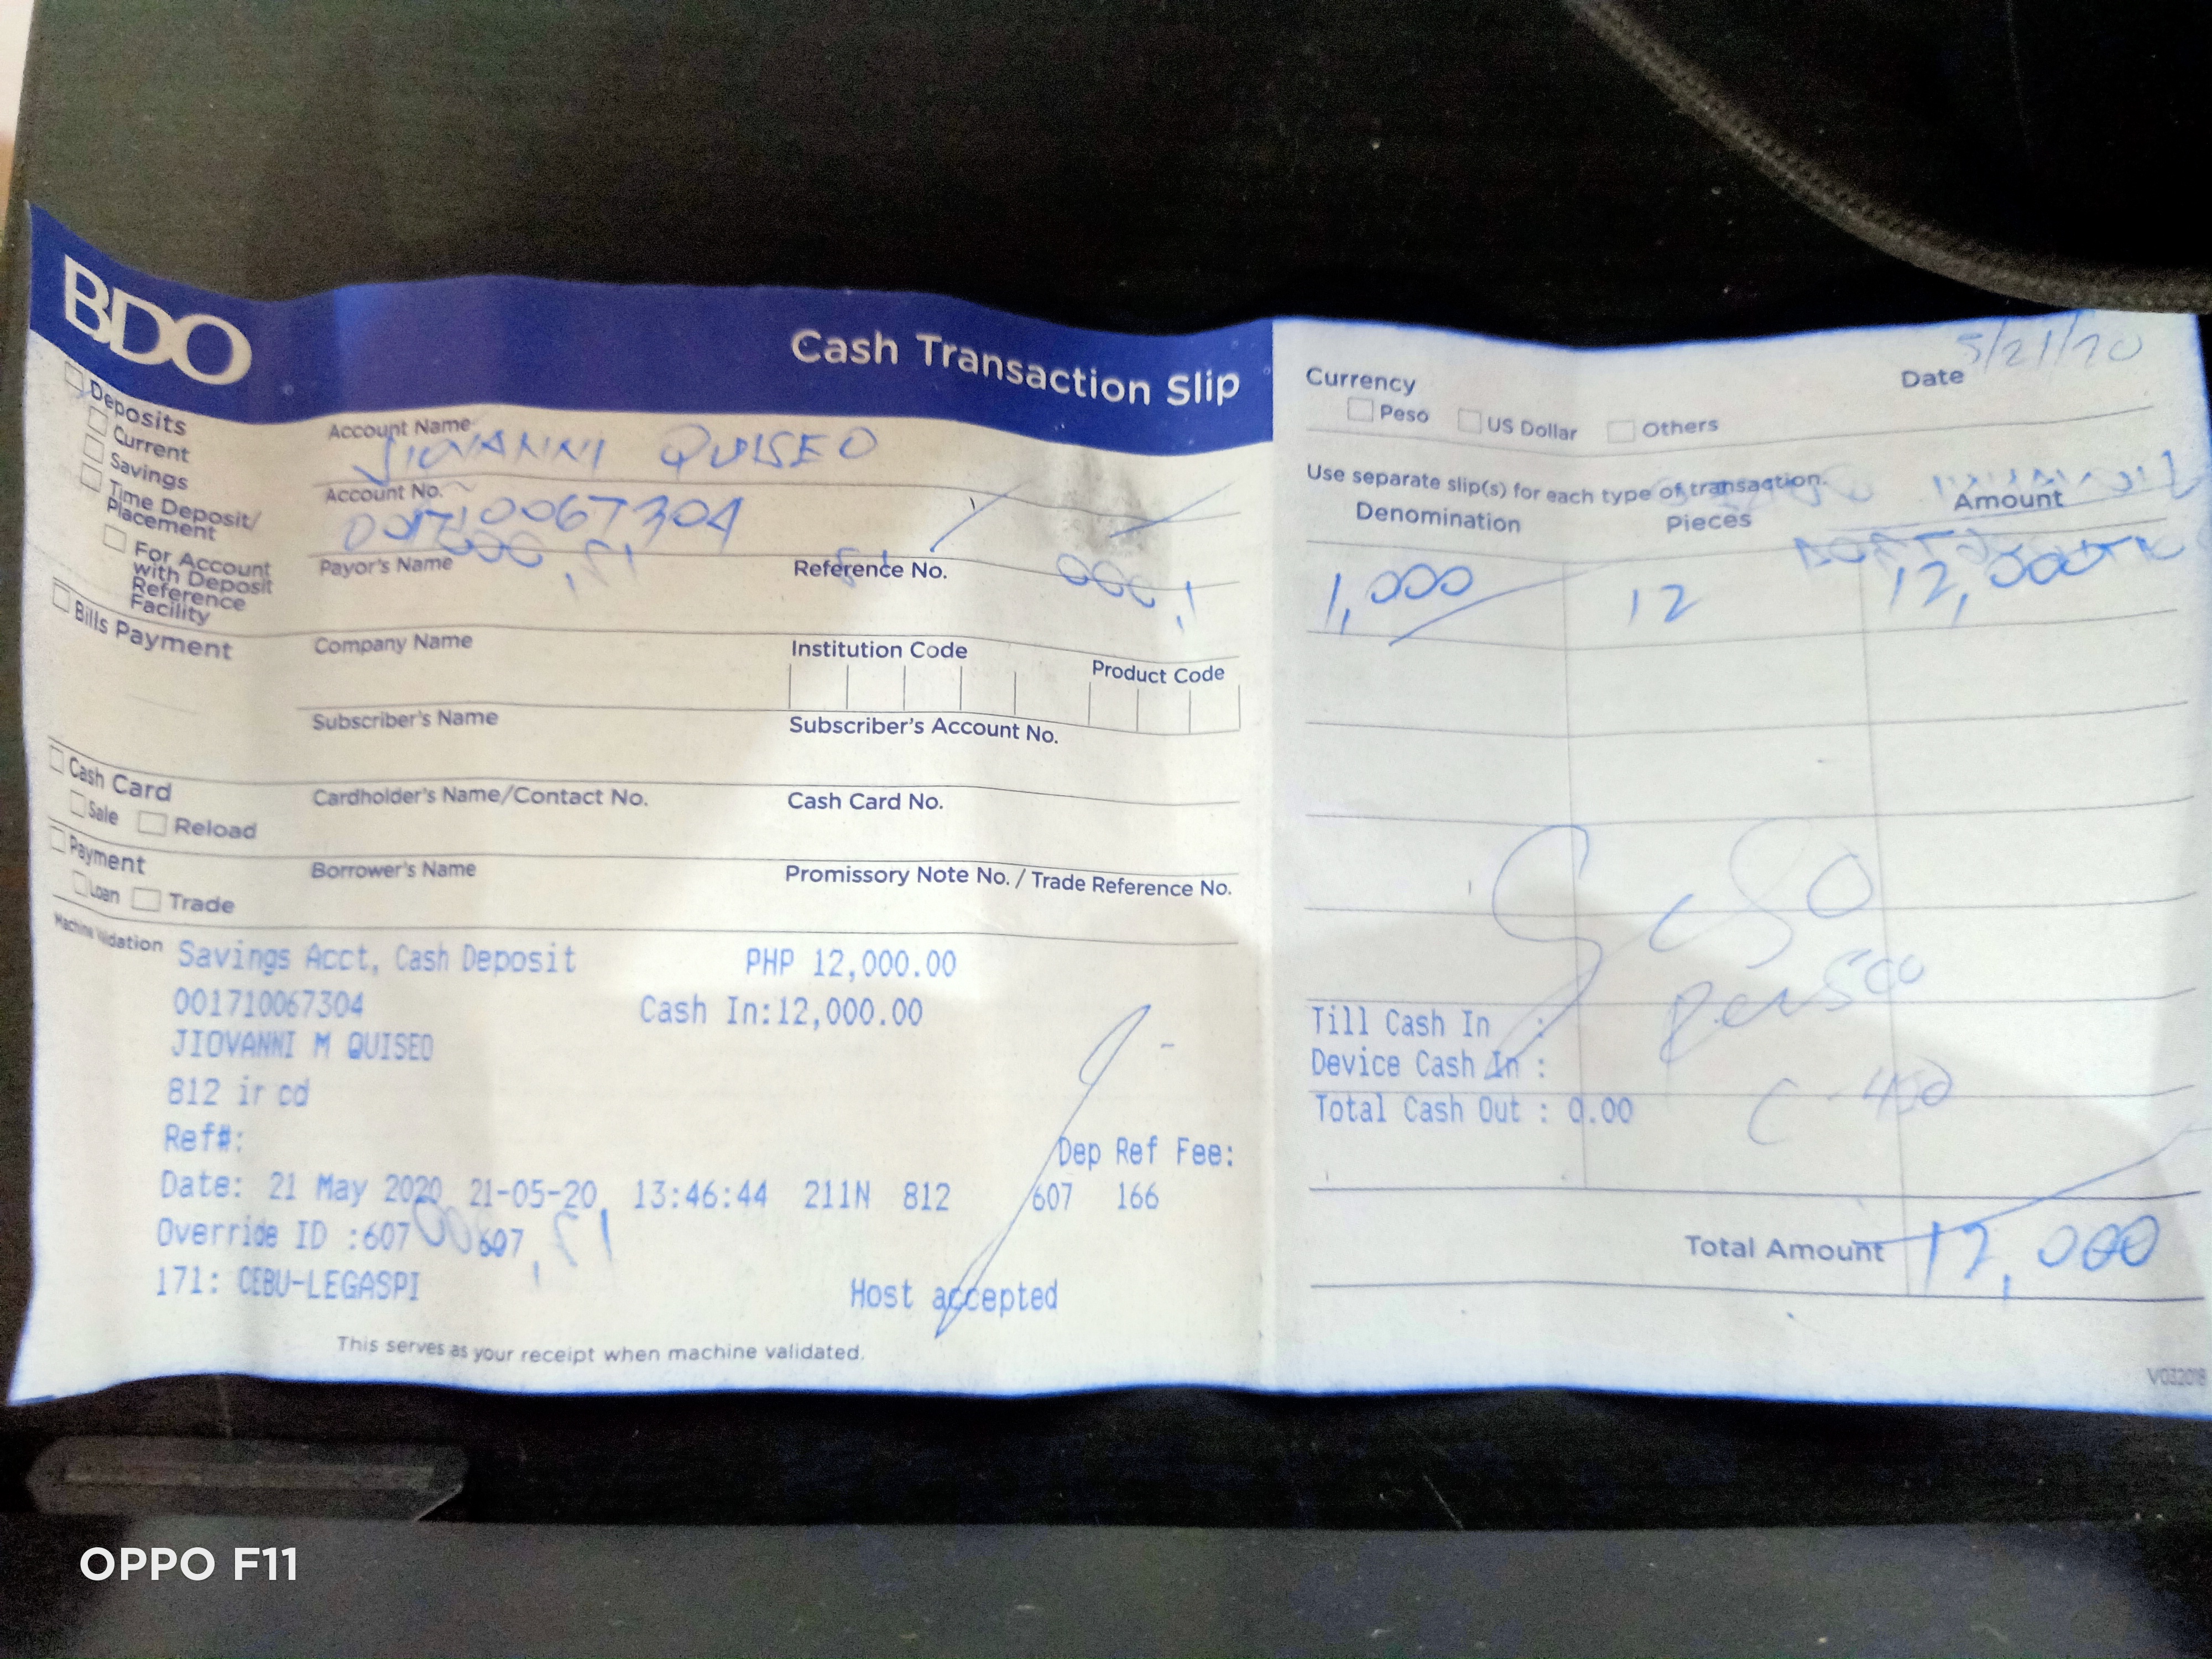 BDO
Cash Transaction Slip
Deposits
Current
Savings
Time Deposit/
Placement
For Account
with Deposit
Reference
Facility
Account Name
JIOVANNI QUISEO
Account No.
001710067304
Payor's Name Reference No.
Bills Payment
Company Name Institution Code Product Code
Subscriber's Name Subscriber's Account No.
Cash Card
Sale Reload
Cardholder's Name/Contact No. Cash Card No.
Payment
Loan Trade
Borrower's Name Promissory Note No. / Trade Reference No.
Machine Validation
Savings Acct, Cash Deposit PHP 12,000.00
001710067304 Cash In:12,000.00
JIOVANNI M QUISEO
812 ir cd
Ref#: Dep Ref Fee:
Date: 21 May 2020 21-05-20 13:46:44 211N 812 607 166
Override ID :607 607
171: CEBU-LEGASPI Host accepted
This serves as your receipt when machine validated.
Currency Date 5/21/20
Peso US Dollar Others
Use separate slip(s) for each type of transaction.
Denomination Pieces Amount
1,000 12 12,000
Till Cash In :
Device Cash In :
Total Cash Out : 0.00
Total Amount 12,000
V032018
OPPO F11